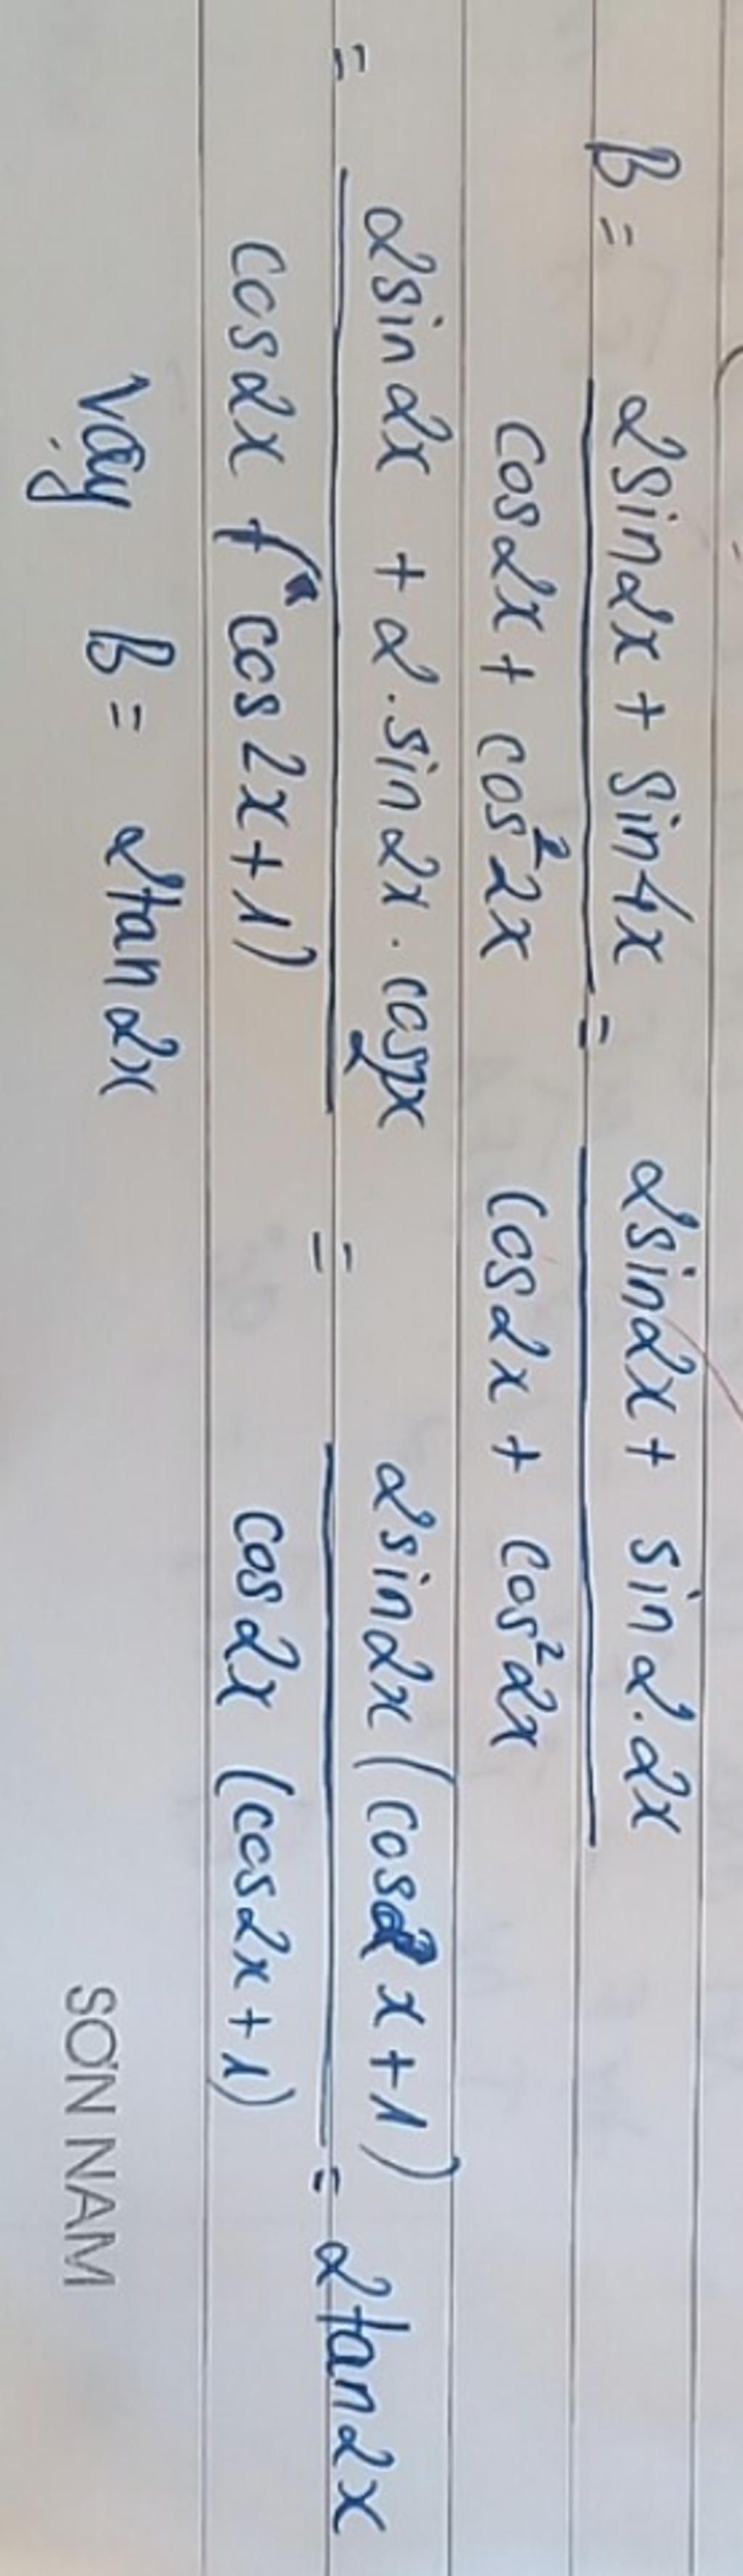 B = (2sin2x + sin4x)/(cos2x + cos²2x) = (2sin2x + sin2.2x)/(cos2x + cos²2x)
= (2sin2x + 2.sin2x.cos2x)/(cos2x (cos2x+1)) = (2sin2x (cos2x+1))/(cos2x (cos2x+1)) = 2tan2x
Vậy B = 2tan2x
SƠN NAM